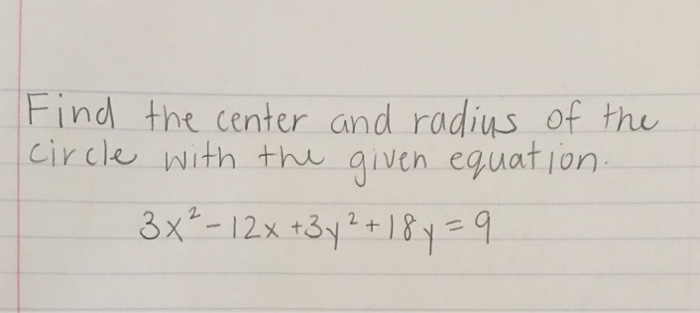 Find the center and radius of the
circle with the given equation.
3x² - 12x + 3y² + 18y = 9